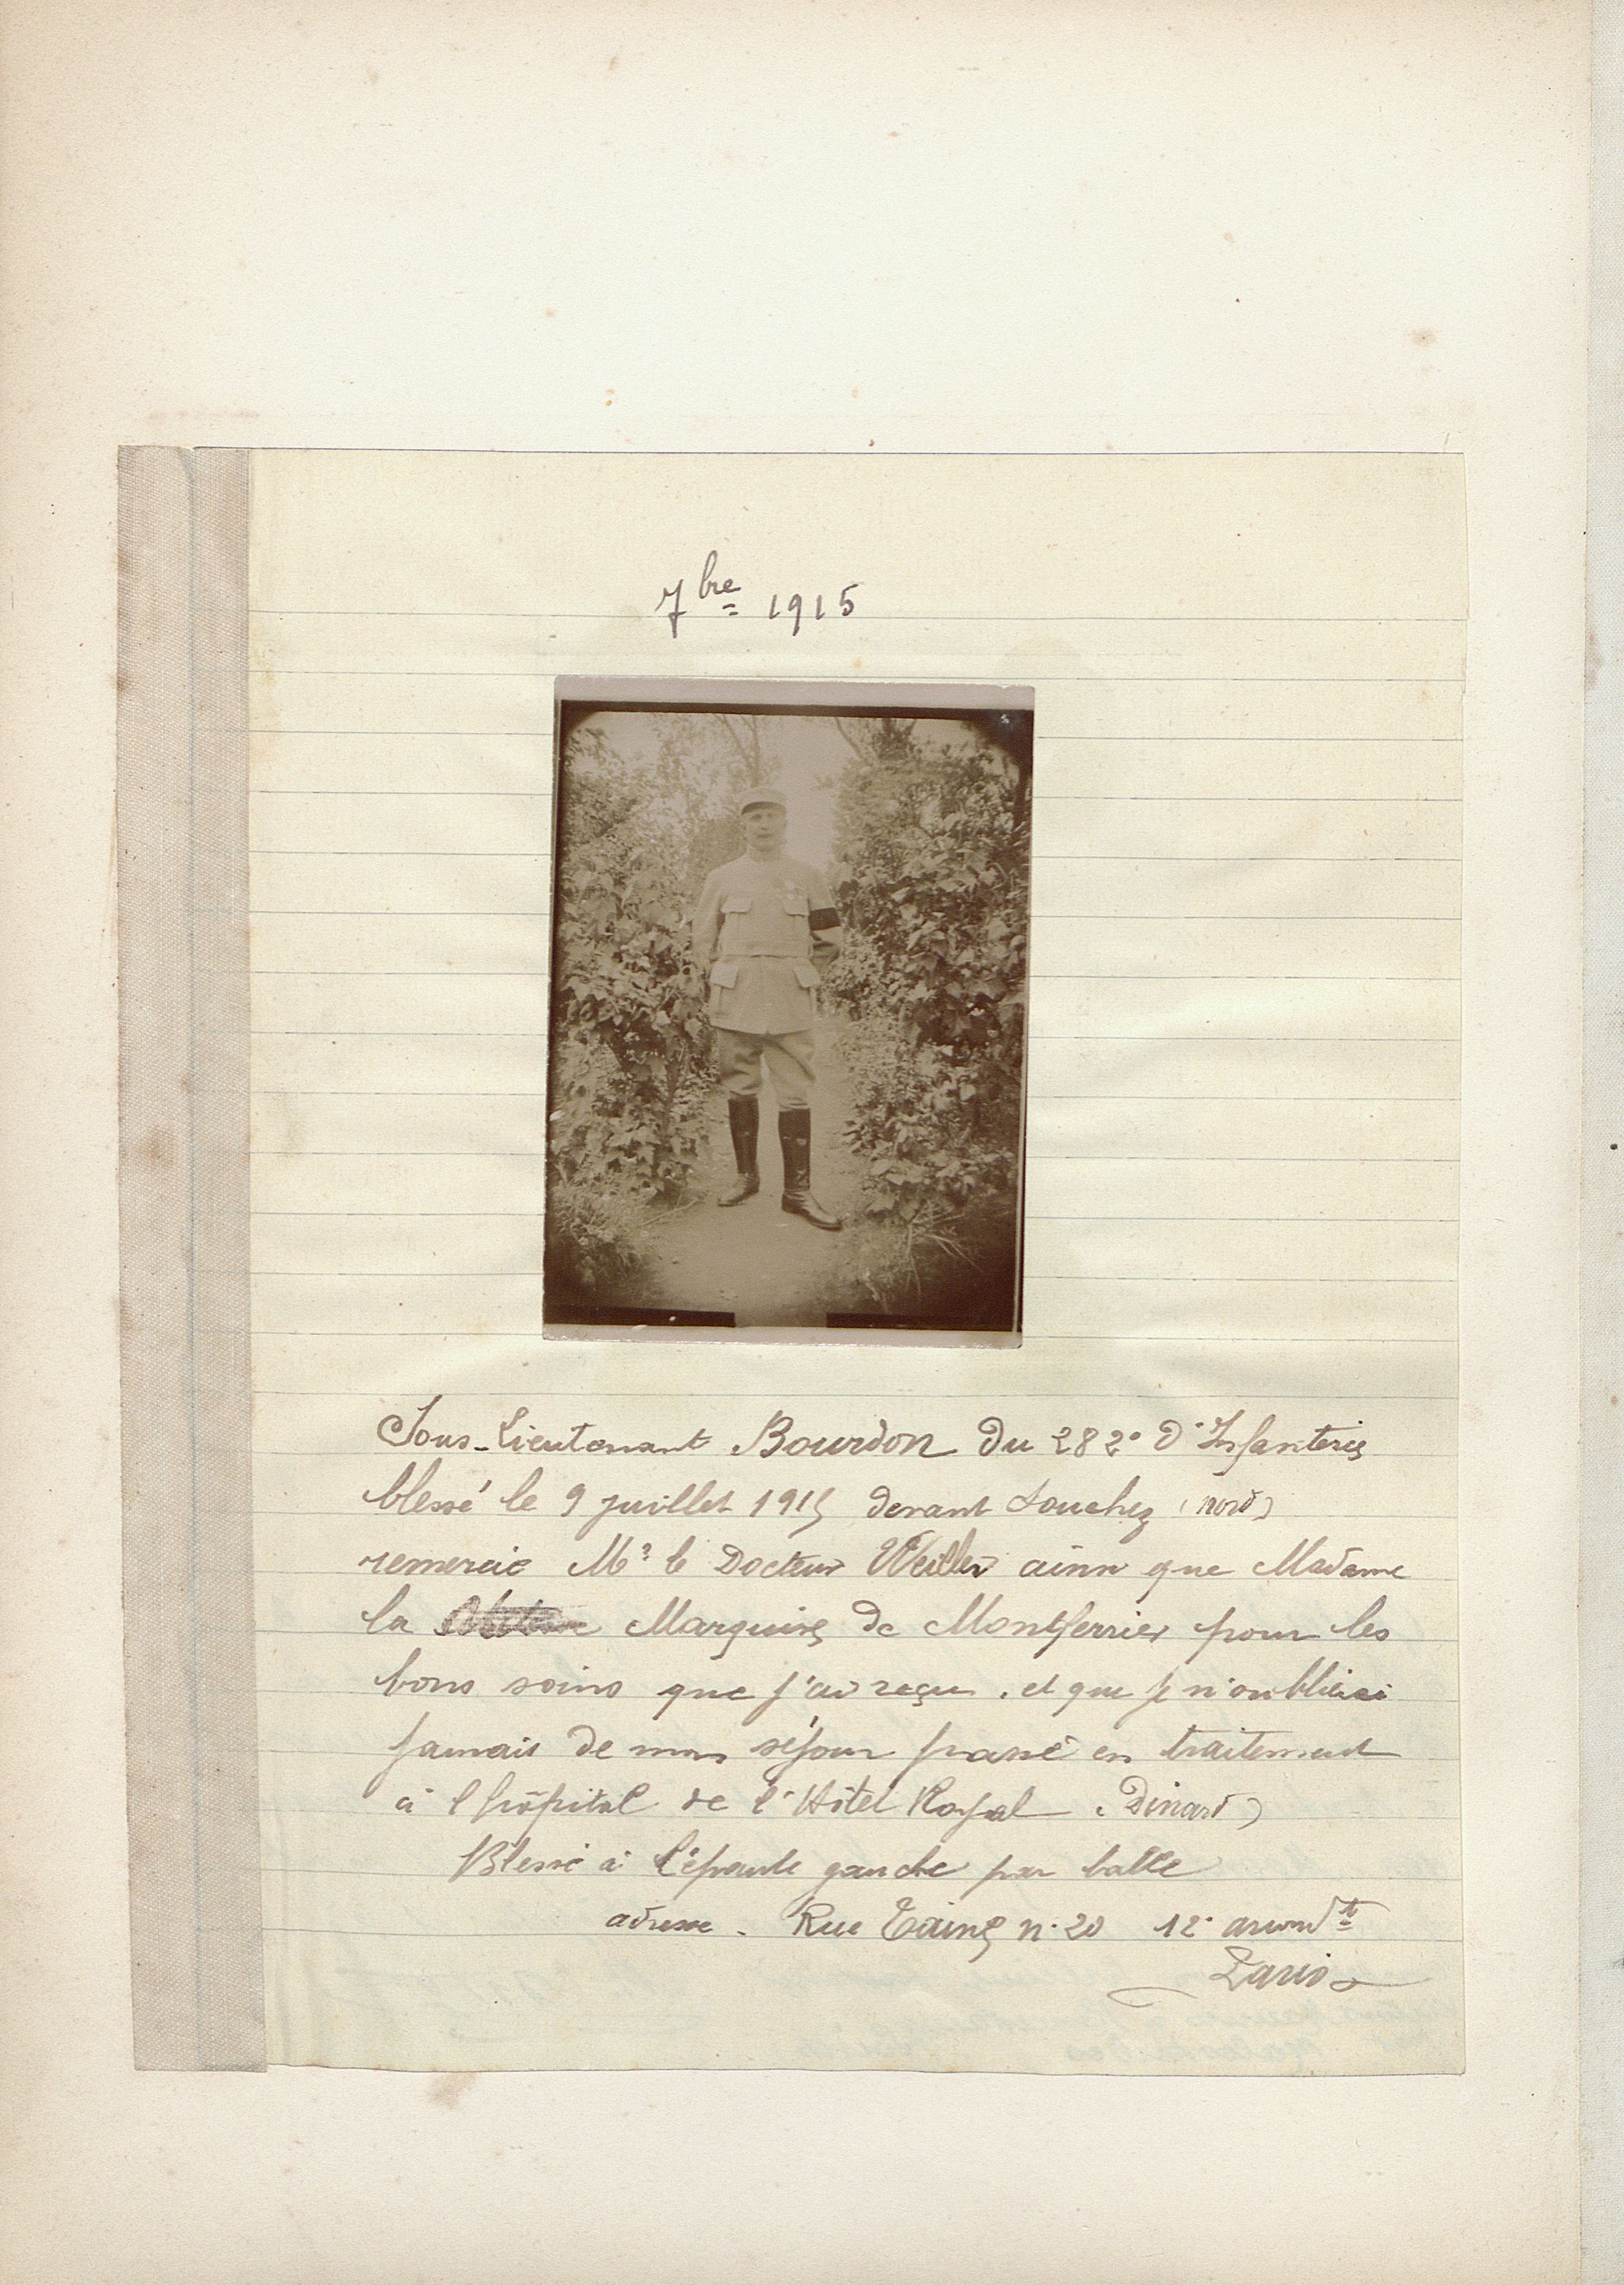 7bre 1915
Sous-Lieutenant Bourdon du 282e d'Infanterie
blessé le 9 juillet 1915 devant Souchez (nord)
remercie Mr le Docteur Weiller ainsi que Madame
la Marquise de Montferrier pour les
bons soins que j'ai reçu, et que je n'oublierai
jamais de mon séjour passé en traitement
à l'hôpital de l'Hôtel Royal (Dinard)
Blessé à l'épaule gauche par balle
adresse - Rue Taine n° 20 12e arrondt
Paris